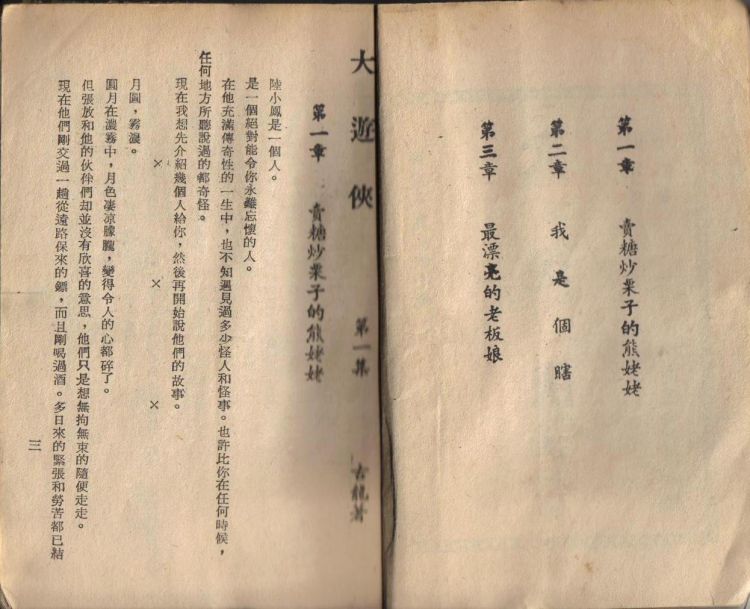 第一章　賣糖炒栗子的熊姥姥
第二章　我是個瞎
第三章　最漂亮的老板娘
大遊俠　第一集　古龍著
第一章　賣糖炒栗子的熊姥姥
陸小鳳是一個人。
是一個絕對能令你永難忘懷的人。
在他充滿傳奇性的一生中，也不知遇見過多少怪人和怪事。也許比你在任何時候，
任何地方所聽說過的都奇怪。
現在我想先介紹幾個人給你，然後再開始說他們的故事。
×　×　×
月圓，霧濃。
圓月在濃霧中，月色凄凉朦朧，變得令人的心都碎了。
但張放和他的伙伴們却並沒有欣喜的意思，他們只是想無拘無束的隨便走走。
現在他們剛交過一趟從遠路保來的鏢，而且剛喝過酒。多日來的緊張和勞苦都已結
三